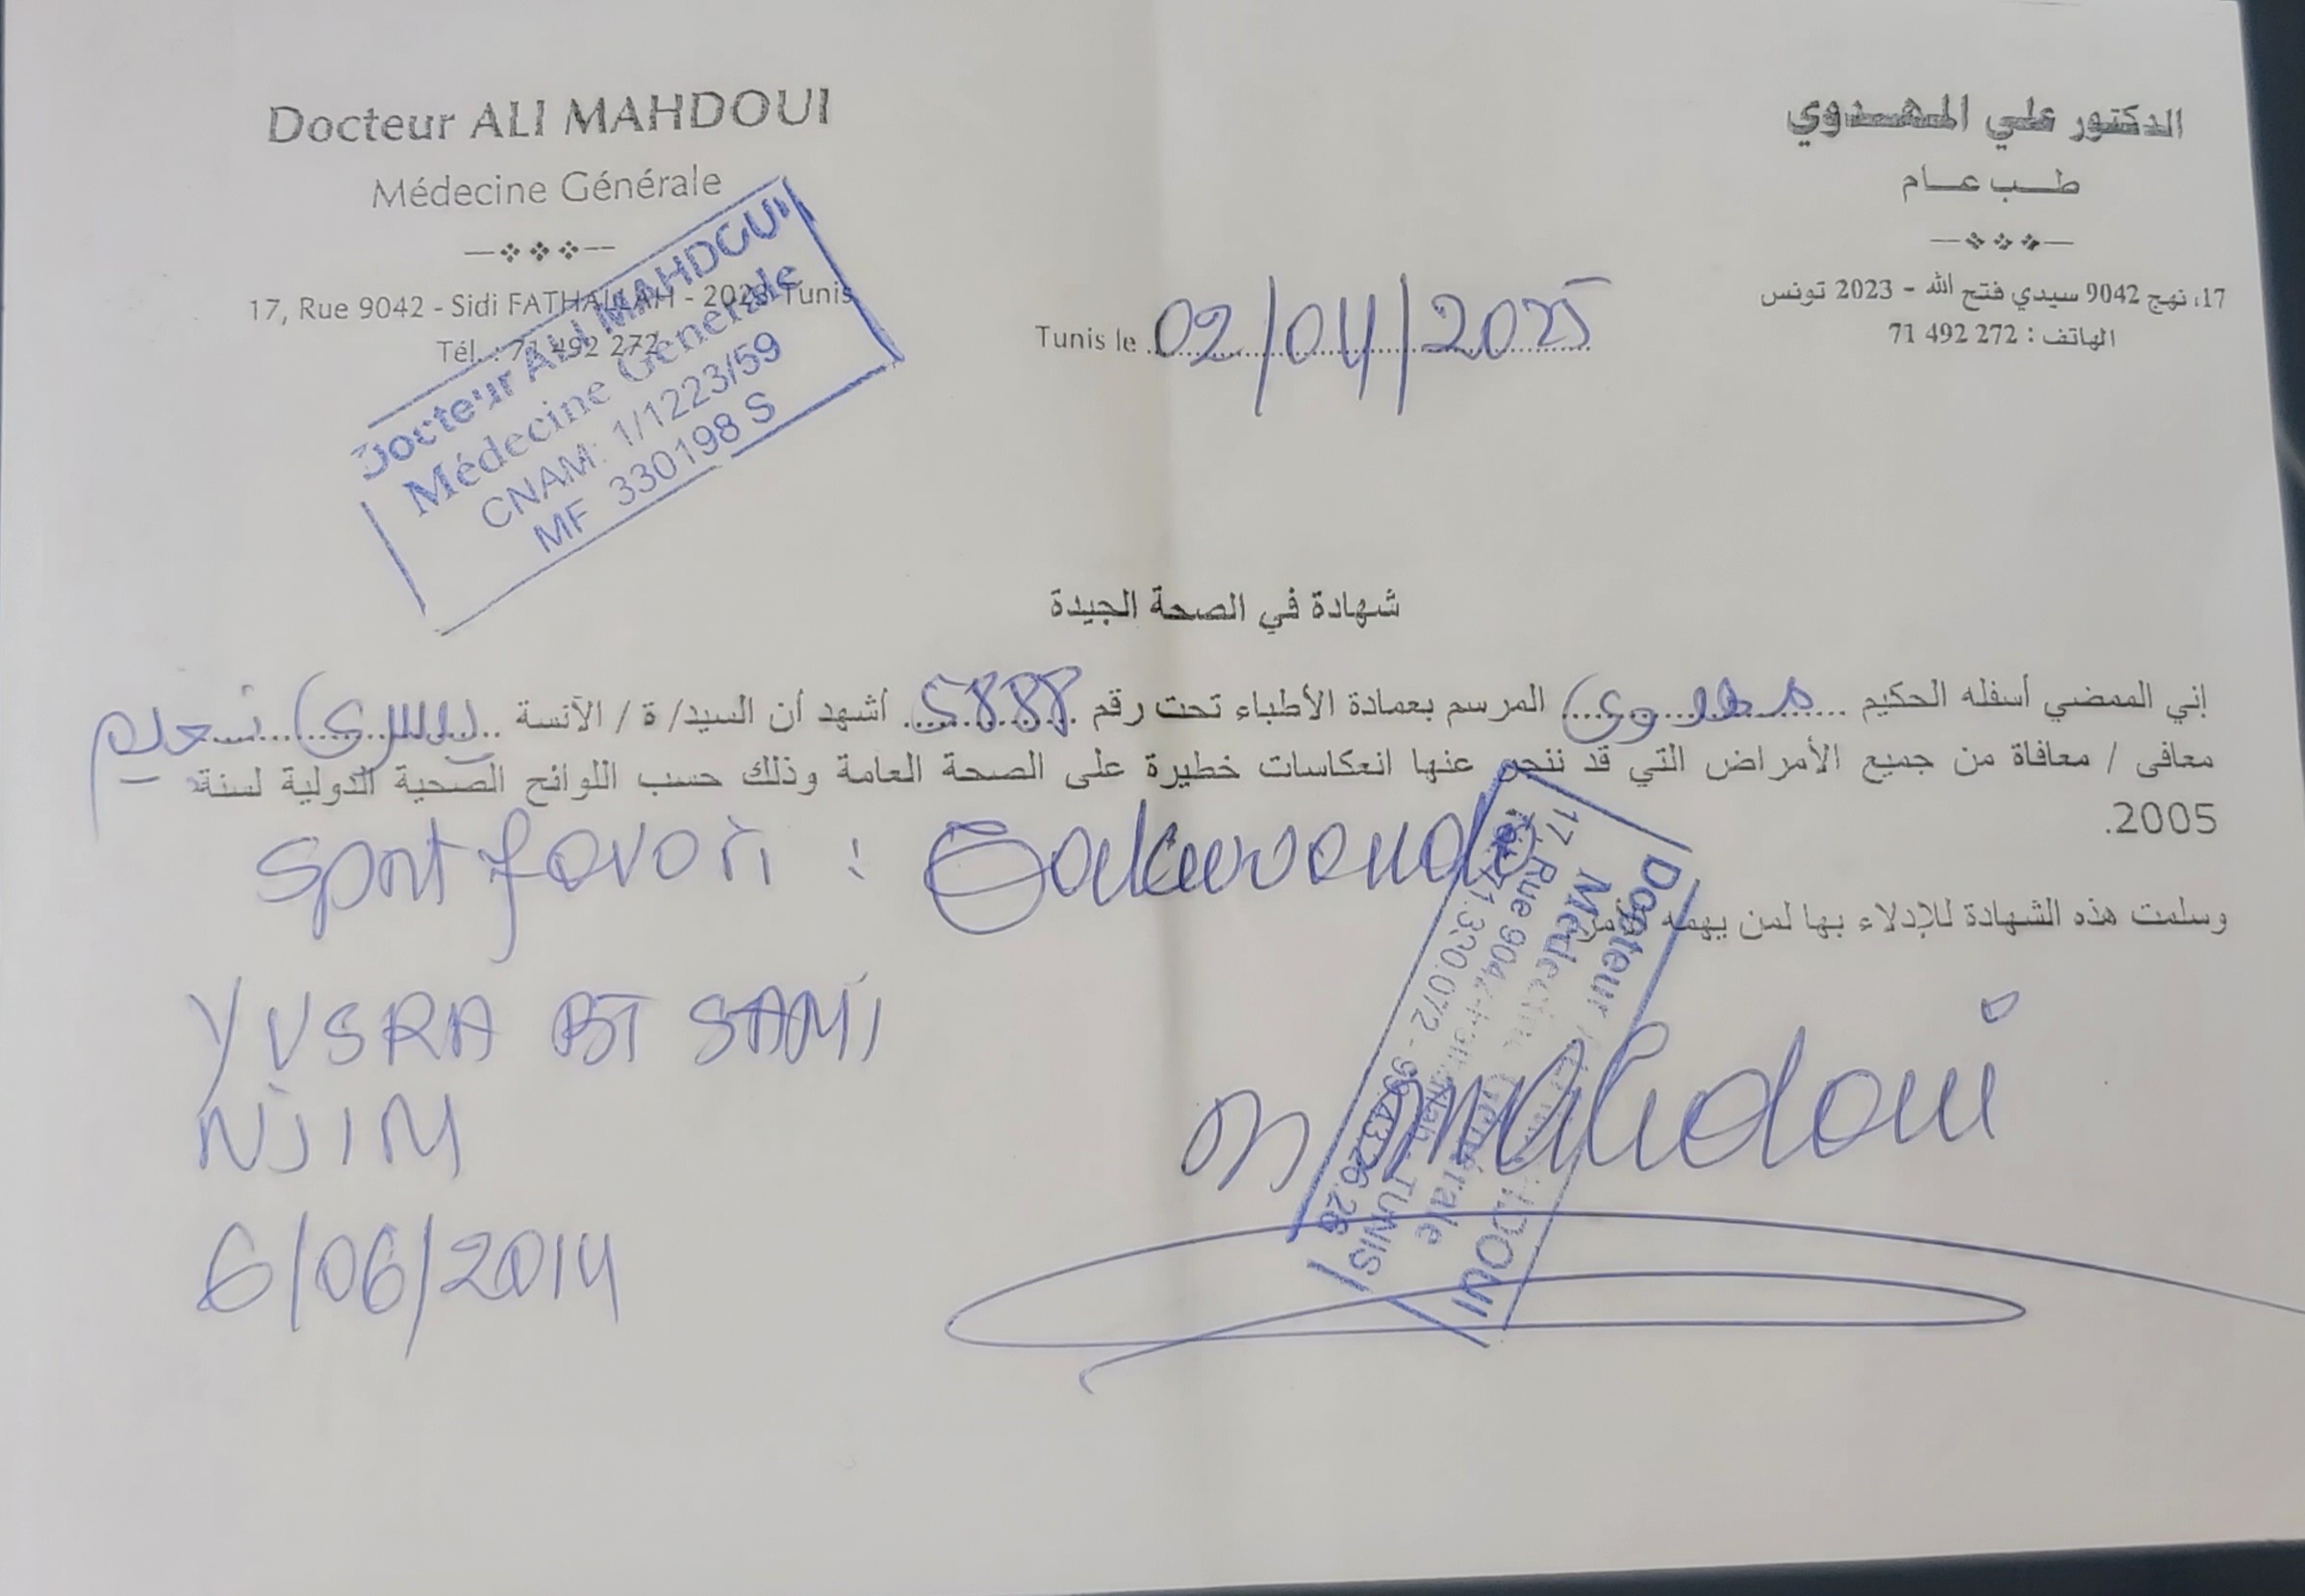 Docteur ALI MAHDOUI
Médecine Générale
17, Rue 9042 - Sidi FATHALLAH - 2023 Tunis
Tél. : 71 492 272
الدكتور علي المهدوي
طب عام
17، نهج 9042 سيدي فتح الله - 2023 تونس
الهاتف : 272 492 71
Docteur ALI MAHDOUI
Médecine Générale
CNAM: 1/1223/59
MF 330198 S
Tunis le 02/04/2025
شهادة في الصحة الجيدة
إني الممضي أسفله الحكيم مهدوي المرسم بعمادة الأطباء تحت رقم 5888 أشهد أن السيد/ ة / الآنسة يسرى نجيم
معافى / معافاة من جميع الأمراض التي قد ننجر عنها انعكاسات خطيرة على الصحة العامة وذلك حسب اللوائح الصحية الدولية لسنة
2005.
sport favori :
وسلمت هذه الشهادة للإدلاء بها لمن يهمه الأمر
YUSRA BT SAMI
NJIM
6/06/2014
Mahdoui
Docteur MAHDOUI
Médecine Générale
17, Rue 9042 - Fathallah - TUNIS